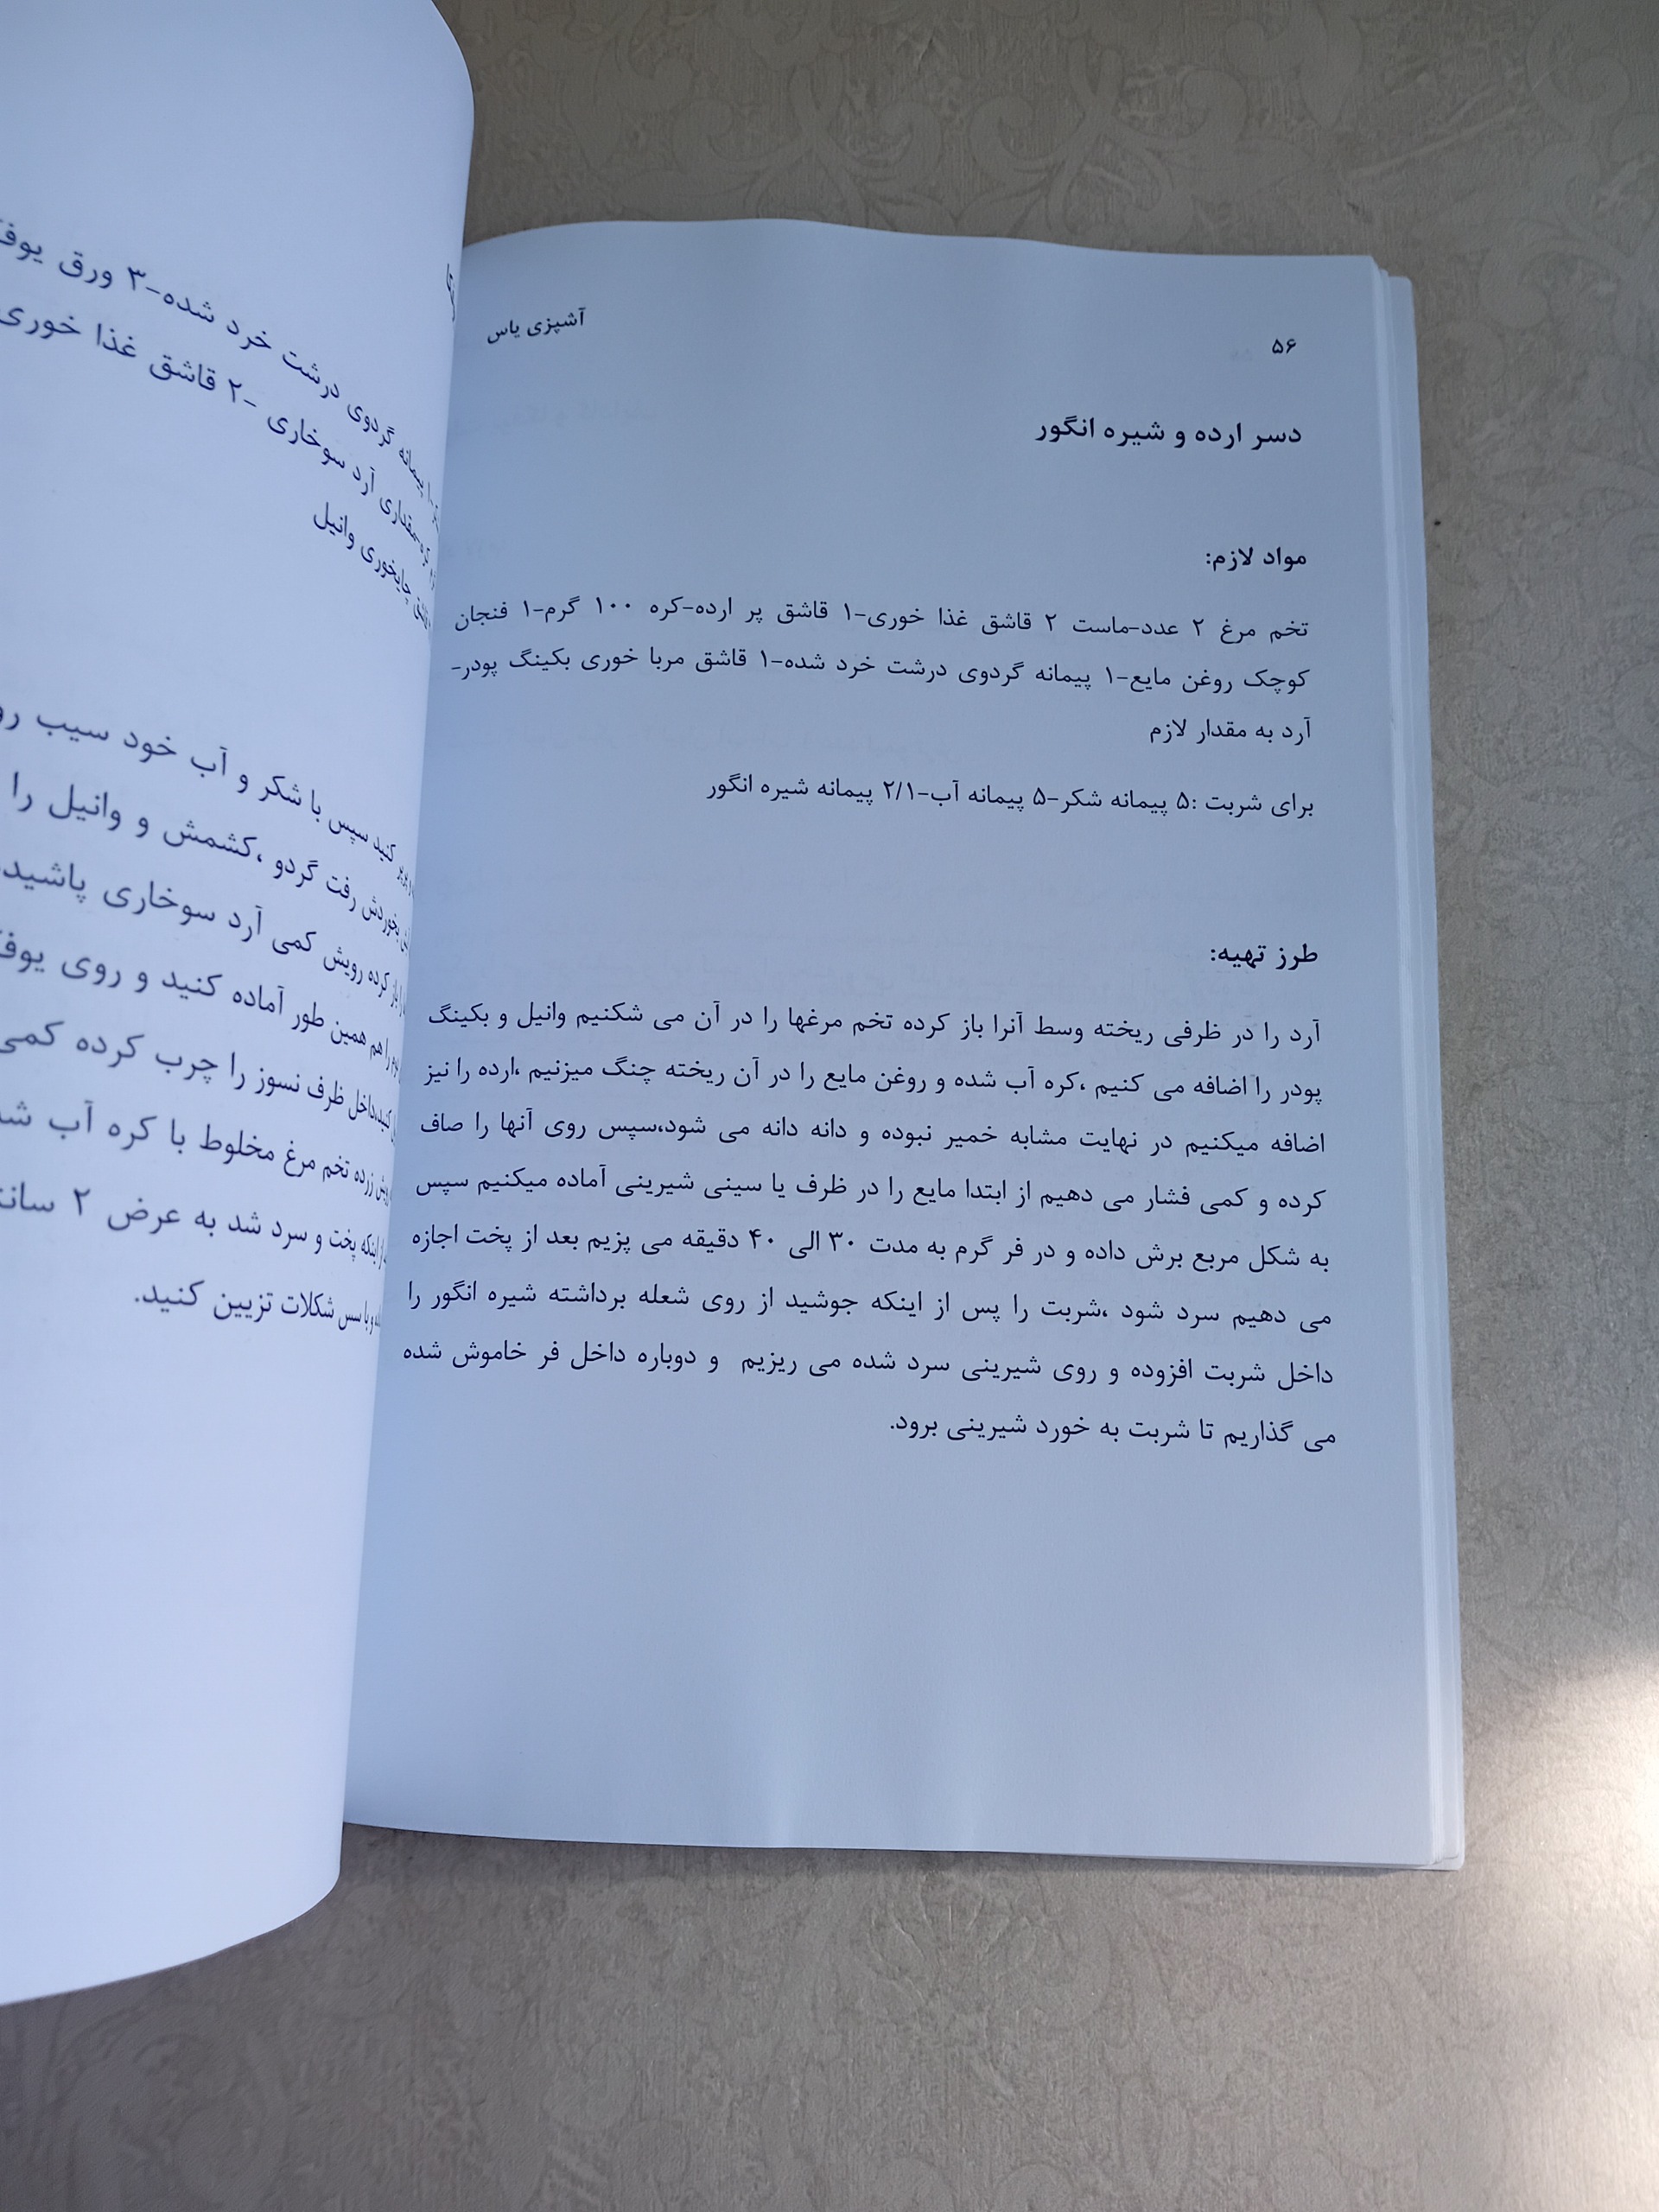 ۵۶
آشپزی یاس
دسر ارده و شیره انگور
مواد لازم:
تخم مرغ ۲ عدد-ماست ۲ قاشق غذا خوری-۱ قاشق پر ارده-کره ۱۰۰ گرم-۱ فنجان
کوچک روغن مایع-۱ پیمانه گردوی درشت خرد شده-۱ قاشق مربا خوری بکینگ پودر-
آرد به مقدار لازم
برای شربت :۵ پیمانه شکر-۵ پیمانه آب-۲/۱ پیمانه شیره انگور
طرز تهیه:
آرد را در ظرفی ریخته وسط آنرا باز کرده تخم مرغها را در آن می شکنیم وانیل و بکینگ
پودر را اضافه می کنیم ،کره آب شده و روغن مایع را در آن ریخته چنگ میزنیم ،ارده را نیز
اضافه میکنیم در نهایت مشابه خمیر نبوده و دانه دانه می شود،سپس روی آنها را صاف
کرده و کمی فشار می دهیم از ابتدا مایع را در ظرف یا سینی شیرینی آماده میکنیم سپس
به شکل مربع برش داده و در فر گرم به مدت ۳۰ الی ۴۰ دقیقه می پزیم بعد از پخت اجازه
می دهیم سرد شود ،شربت را پس از اینکه جوشید از روی شعله برداشته شیره انگور را
داخل شربت افزوده و روی شیرینی سرد شده می ریزیم و دوباره داخل فر خاموش شده
می گذاریم تا شربت به خورد شیرینی برود.
پیمانه گردوی درشت خرد شده-۳ ورق
مقداری آرد سوخاری -۲ قاشق غذا خوری
چایخوری وانیل
کنید سپس با شکر و آب خود سیب
بخوردش رفت گردو ،کشمش و وانیل را
باز کرده رویش کمی آرد سوخاری پاشید
را هم همین طور آماده کنید و روی
کنید،داخل ظرف نسوز را چرب کرده کمی
زرده تخم مرغ مخلوط با کره آب
اینکه پخت و سرد شد به عرض ۲
و با سس شکلات تزیین کنید.